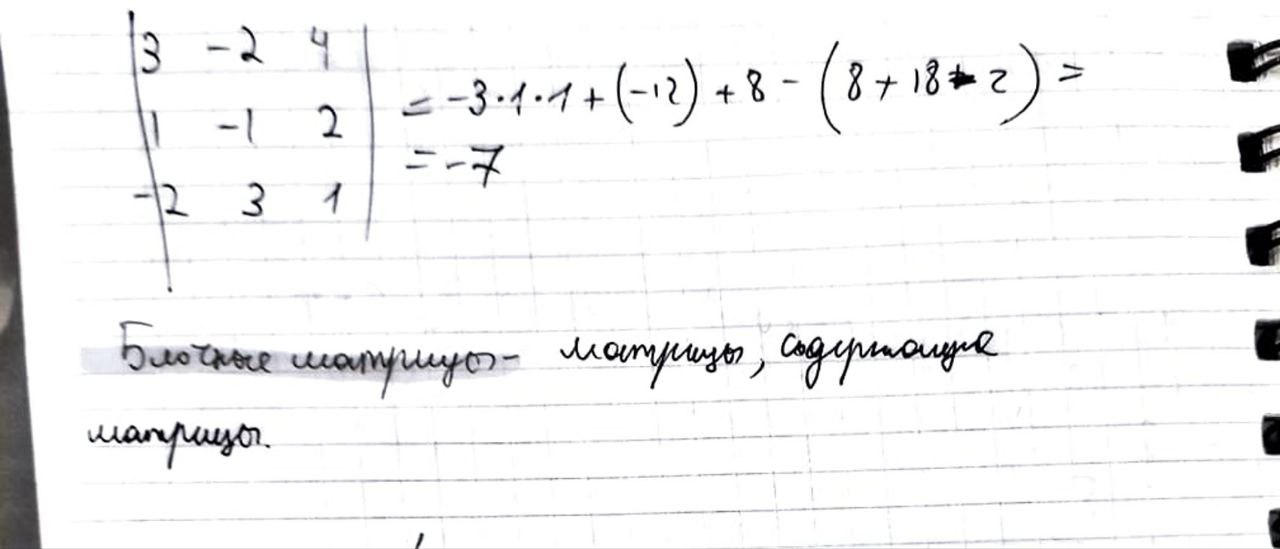 |3 -2 4|
|1 -1 2| = -3·1·1 + (-12) + 8 - (8 + 18 - 2) =
|-2 3 1| = -7
Блочные матрицы - матрицы, содержащие
матрицы.